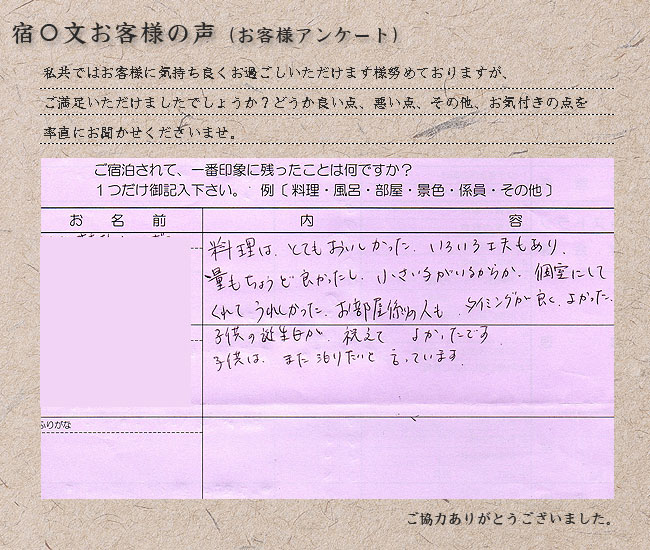 宿〇文お客様の声（お客様アンケート）
私共ではお客様に気持ち良くお過ごしいただけます様努めておりますが、
ご満足いただけましたでしょうか？どうか良い点、悪い点、その他、お気付きの点を
率直にお聞かせくださいませ。
ご宿泊されて、一番印象に残ったことは何ですか？
１つだけ御記入下さい。 例〔 料理・風呂・部屋・景色・係員・その他 〕
お 名 前 内 容
料理は、とてもおいしかった。いろいろ工夫もあり、
量もちょうど良かったし、小さい子がいるからか、個室にして
くれて うれしかった。お部屋係りの人も、タイミングが良く、よかった。
子供の誕生日が、祝えて よかったです
子供は、また泊りたいと 言っています。
ふりがな
ご協力ありがとうございました。